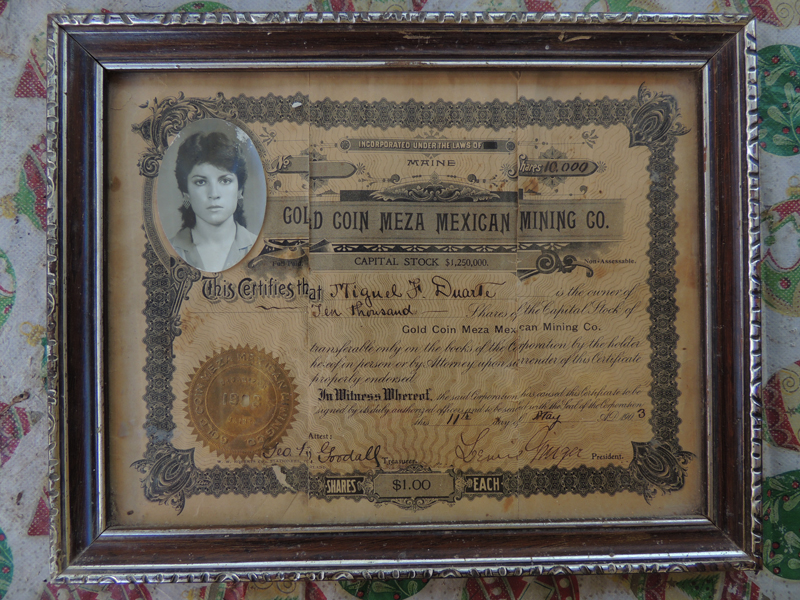 INCORPORATED UNDER THE LAWS OF
MAINE
No
Shares 10,000
GOLD COIN MEZA MEXICAN MINING CO.
CAPITAL STOCK $1,250,000.
Non-Assessable.
This Certifies that Miguel F. Duarte is the owner of
Ten thousand Shares of the Capital Stock of
Gold Coin Meza Mexican Mining Co.
transferable only on the books of the Corporation by the holder
hereof in person or by Attorney upon surrender of this Certificate
properly endorsed
In Witness Whereof, the said Corporation has caused this Certificate to be
signed by its duly authorized officers and to be sealed with the Seal of the Corporation
this 11th Day of May A.D. 1903
1903
Attest:
Geo. Goodall Treasurer
President.
SHARES OF $1.00 EACH